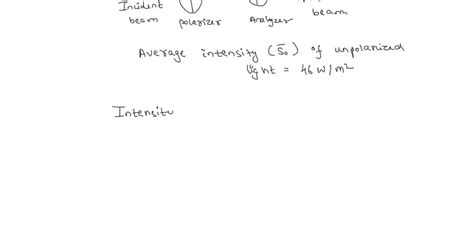 Incident
beam polarizer Analyzer beam
Average intensity (S̅₀) of unpolarized
light = 46 W/m²
Intensity